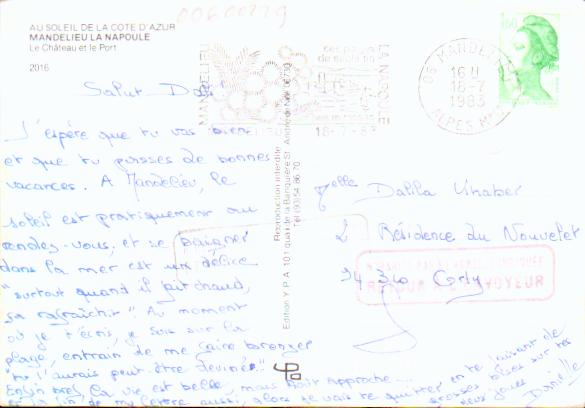 00600229
AU SOLEIL DE LA COTE D'AZUR
MANDELIEU LA NAPOULE
Le Château et le Port
2016
MANDELIEU
LA NAPOULE
18-7-83
06 MANDELIEU
16 H
18-7
1983
ALPES MMES
Salut
J'espère que tu vas bien
et que tu puisses de bonnes
vacances. A Mandelieu, le
soleil est pratiquement au
rendez-vous, et se baigner
dans la mer est un délice
"surtout quand il fait chaud,
sa rafraîchit". Au moment
où je t'écris, je suis sur la
plage, entrain de me faire bronzer
"tu l'aurais peut-être deviné."
Enfin bref, la vie est belle, mais août approche....
et la fin de ma lettre aussi, alors je vais te quitter en te laissant de
grosses bises sur tes
deux joues
Danielle
Reproduction interdite
Edition Y.P.A 101 quai de la Banquière St André de Nice 06730
Tél (93) 54 86 70
Melle Dalila
2 Résidence du Nouvelet
94 310 Orly
RETOUR A L'ENVOYEUR